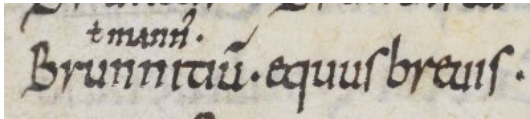 ł mann᷑.
Brunnitiū. equus breuis.